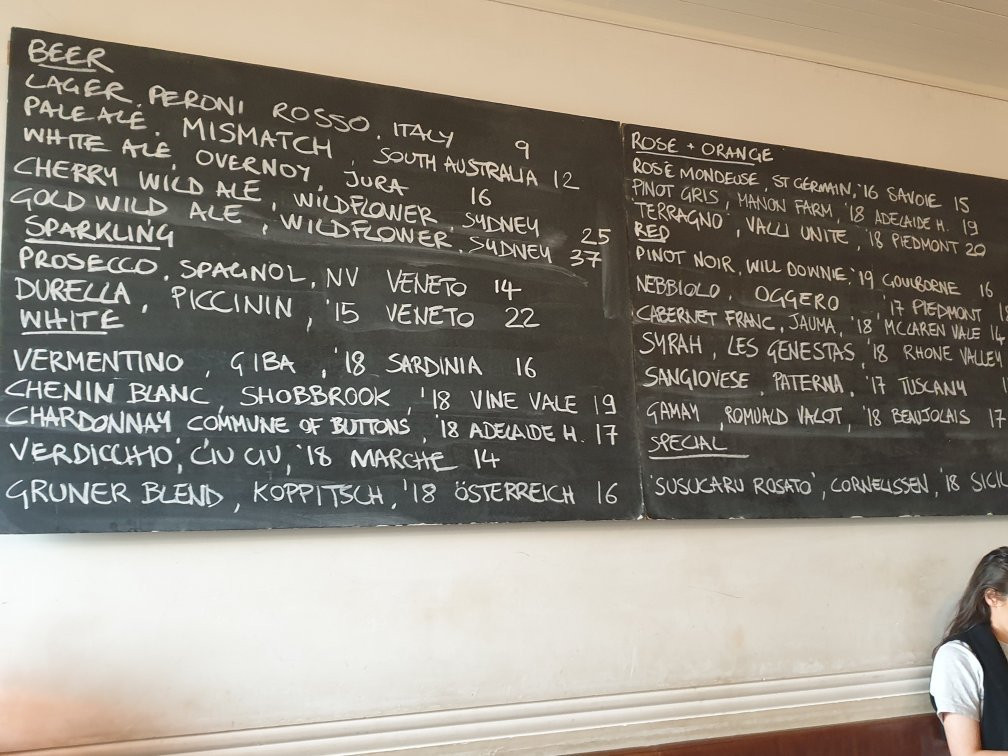 BEER
LAGER. PERONI ROSSO. ITALY 9
PALE ALE. MISMATCH, SOUTH AUSTRALIA 12
WHITE ALE, OVERNOY, JURA 16
CHERRY WILD ALE, WILDFLOWER, SYDNEY 25
GOLD WILD ALE, WILDFLOWER, SYDNEY 37
SPARKLING
PROSECCO, SPAGNOL, NV VENETO 14
DURELLA, PICCININ, '15 VENETO 22
WHITE
VERMENTINO, GIBA, '18 SARDINIA 16
CHENIN BLANC, SHOBBROOK, '18 VINE VALE 19
CHARDONNAY COMMUNE OF BUTTONS, '18 ADELAIDE H. 17
VERDICCHIO, CIU CIU, '18 MARCHE 14
GRUNER BLEND, KOPPITSCH, '18 ÖSTERREICH 16
ROSE + ORANGE
ROSÉ MONDEUSE, ST GERMAIN, '16 SAVOIE 15
PINOT GRIS, MANON FARM, '18 ADELAIDE H. 19
'TERRAGNO', VALLI UNITE, '18 PIEDMONT 20
RED
PINOT NOIR, WILL DOWNIE '19 GOULBORNE 16
NEBBIOLO, OGGERO '17 PIEDMONT
CABERNET FRANC, JAUMA, '18 MCLAREN VALE 14
SYRAH, LES GENESTAS, '18 RHONE VALLEY
SANGIOVESE, PATERNA, '17 TUSCANY
GAMAY, ROMUALD VALOT, '18 BEAUJOLAIS 17
SPECIAL
'SUSUCARU ROSATO', CORNELISSEN, '18 SICIL